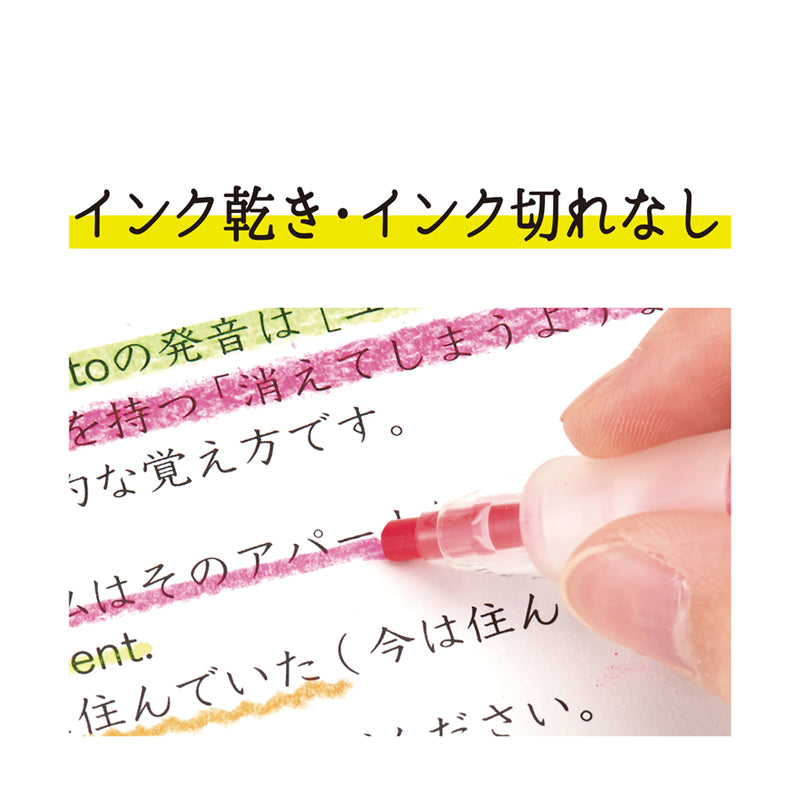 インク乾き・インク切れなし
toの発音は「
を持つ「消えてしまうような
的な覚え方です。
ムはそのアパート
ent.
住んでいた(今は住ん
ください。